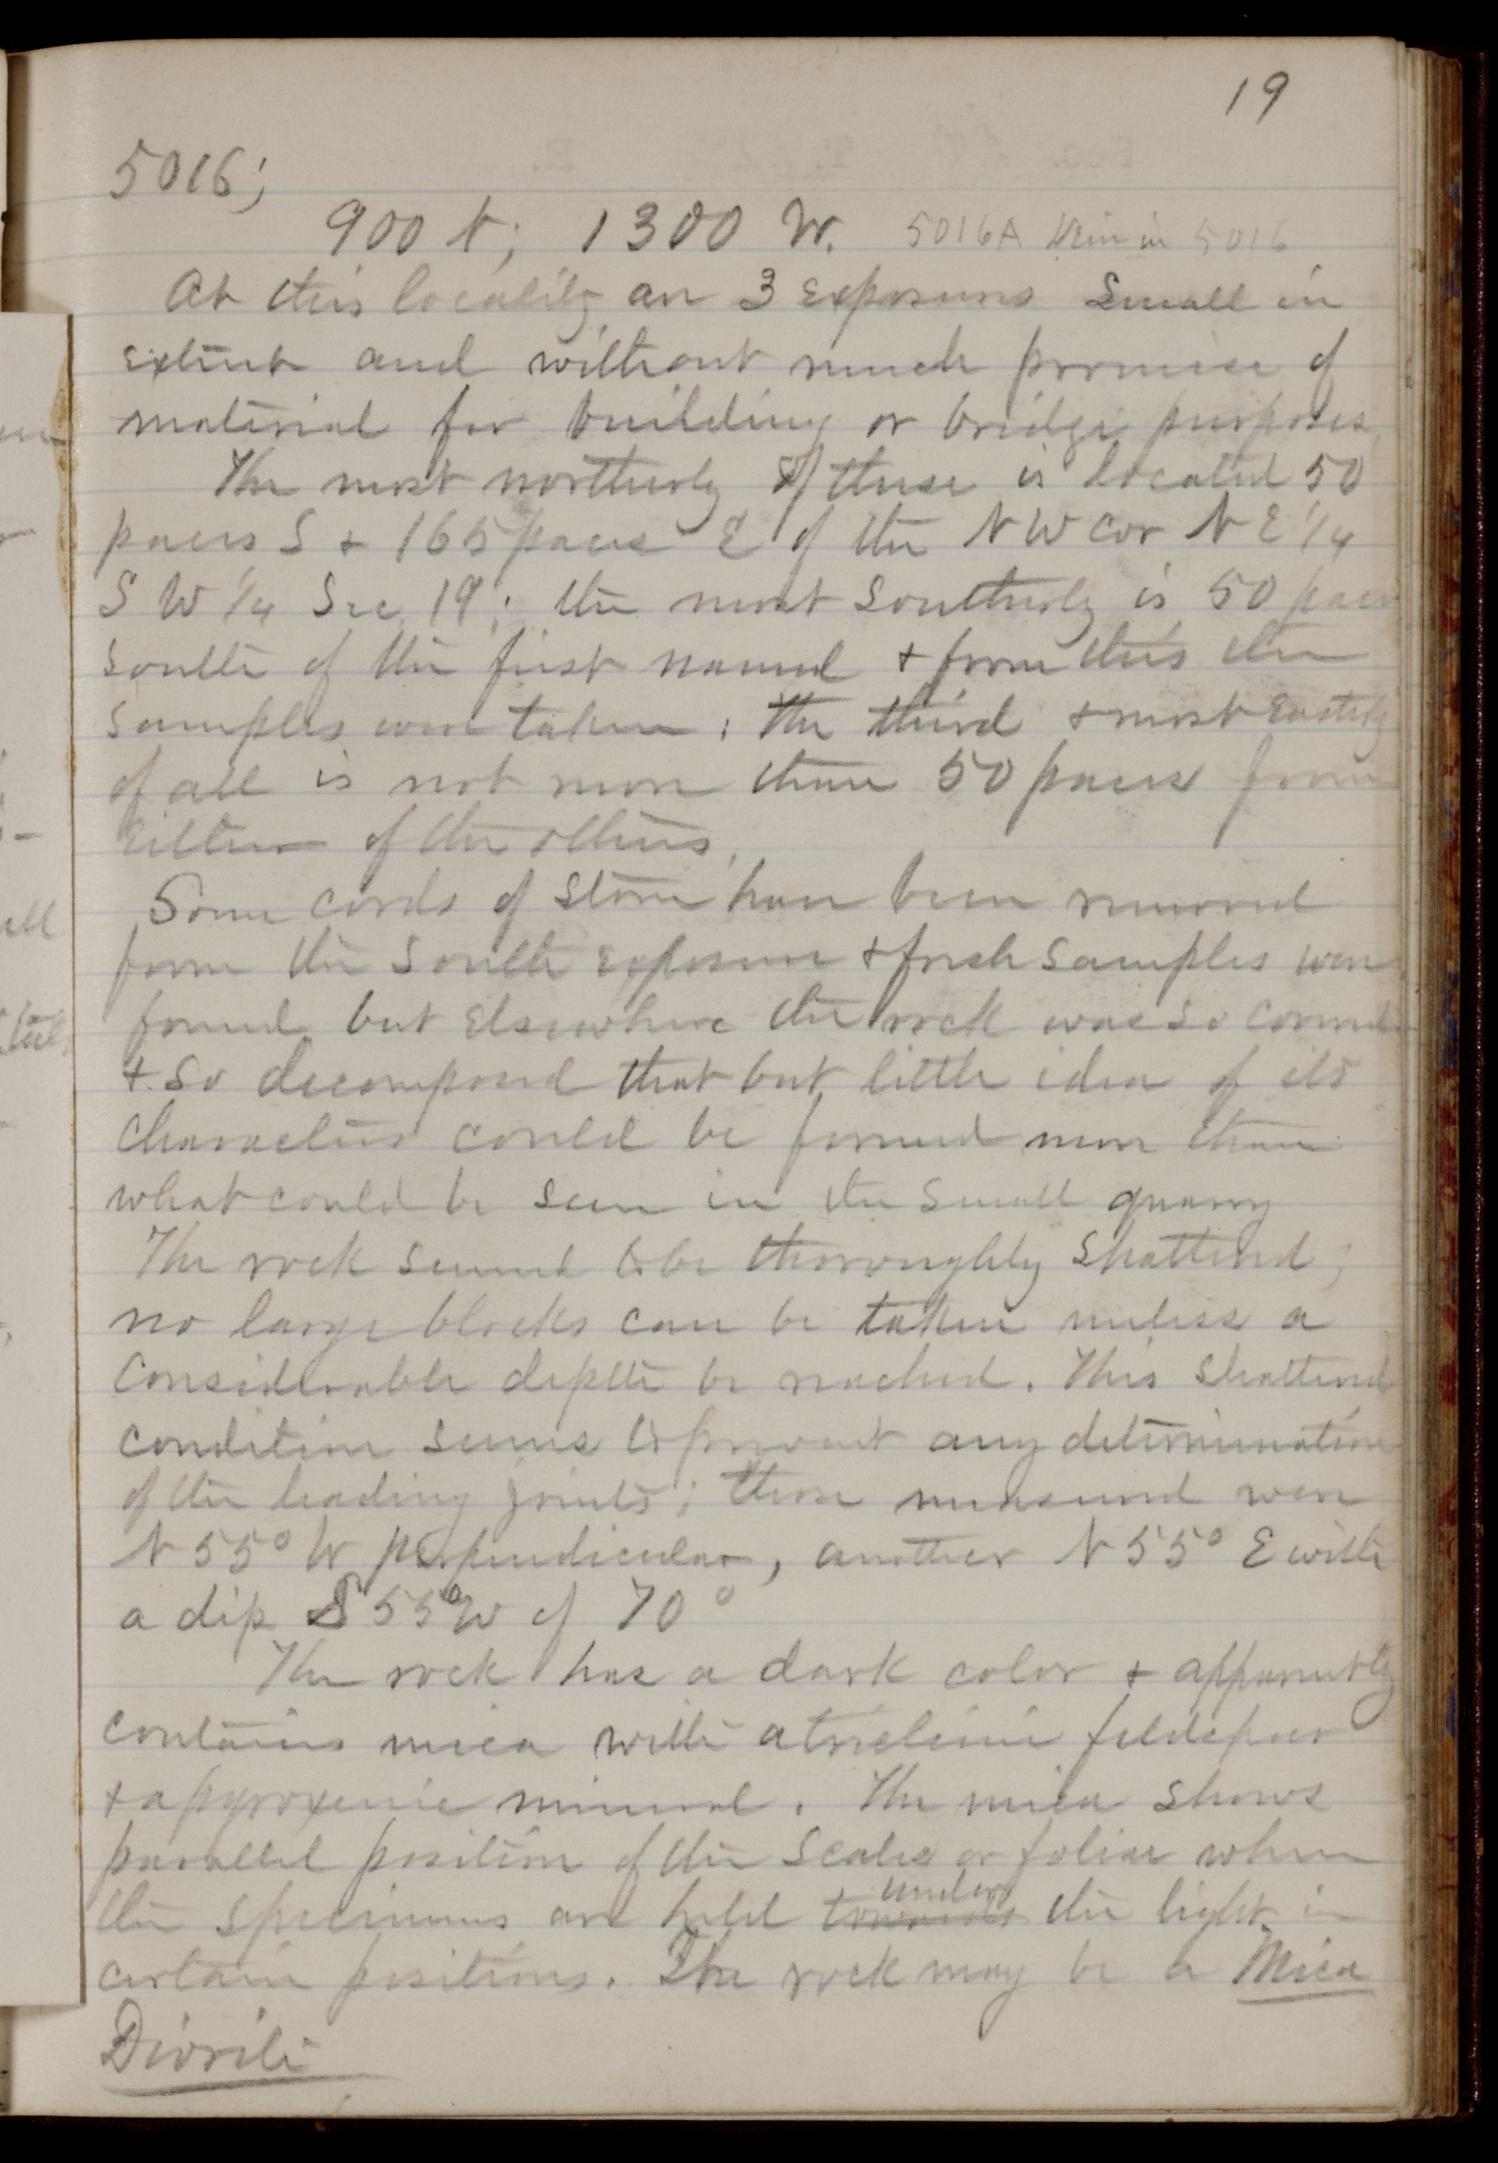 19
5016;
900 N; 1300 W. 5016A Vein in 5016
At this locality are 3 exposures small in
extent and without much promise of
material for building or bridge purposes.
The most northerly of these is located 50
paces S + 165 paces E of the NW cor NE 1/4
SW 1/4 Sec 19; the most southerly is 50 paces
south of the first named + from this the
samples were taken; the third + most easterly
of all is not more than 50 paces from
either of the others.
Some cords of stone have been removed
from the south exposure + fresh samples were
found, but elsewhere the rock was so
+ so decomposed that but little idea of its
characters could be formed more than
what could be seen in the small quarry
The rock seemed to be thoroughly shattered;
no large blocks can be taken unless a
considerable depth be reached. This shattered
condition seems to prevent any determination
of the leading joints; those measured were
N 55° W perpendicular, another N 55° E with
a dip S 55° W of 70°
The rock has a dark color + apparently
contains mica with a triclinic feldspar
+ a pyroxenic mineral. The mica shows
parallel position of the scales or foliae when
under
the specimens are held towards the light in
certain positions. The rock may be a Mica
Diorite
all